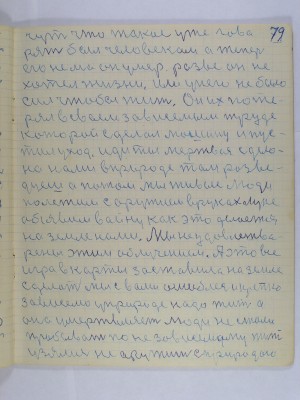 79
чут что такое уже гова
рят был человеком а теперь
его нема он умер. разве он не
хотел жизни. Или у него не было
сил чтобы жит. Он их поте
рял в своем зависимым труде
которой сделал машину и пус
тил уход. иди ты мертвая сдело
на нами в природе там разве
а потом мы живые люди
полетим с оружием в руках
обявили войну как это делается
на земле нами. Мы неудовлетво
рены этим облучением. А это все
игра в карты заставила на земле
сделат мы с вами ошиблис
зависимо у природе надо жит а
она умертвляет люди не стали
по не зависимому пит
взялис не дружит с природою